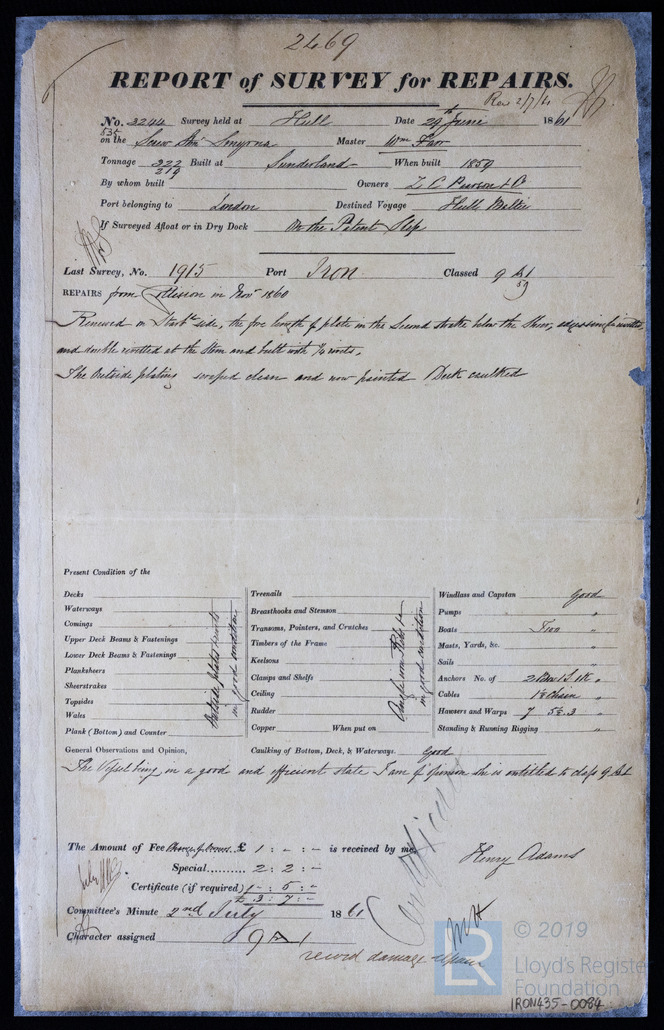 2469
REPORT of SURVEY for REPAIRS.
Rec 2/7/61
No. 3244 Survey held at Hull Date 29th June 1861
535
on the Screw Str Smyrna Master Wm Farr
Tonnage 322 Built at Sunderland When built 1859
219
By whom built Owners Z C Pearson & Co
Port belonging to London Destined Voyage Hull Baltic
If Surveyed Afloat or in Dry Dock On the Patent Slip
Last Survey, No. 1915 Port Iron Classed 9 A1
59
REPAIRS from Collision in Novr 1860
Renewed on Starbd side, the fore length of plate in the Second strake below the Sheer, edges single rivetted,
and double rivetted at the Stem and butt with ¾ rivets.
The Outside plating scraped clean and now painted Deck caulked
Present Condition of the
Decks
Waterways
Comings
Upper Deck Beams & Fastenings
Lower Deck Beams & Fastenings
Planksheers
Sheerstrakes
Topsides
Wales
Plank (Bottom) and Counter
Outside plates & rivets
in good condition
Treenails
Breasthooks and Stemson
Transoms, Pointers, and Crutches
Timbers of the Frame
Keelsons
Clamps and Shelfs
Ceiling
Rudder
Copper When put on
Angle iron Ribs &c
in good condition
Windlass and Capstan Good
Pumps "
Boats Iron "
Masts, Yards, &c. "
Sails "
Anchors No. of 2 Bow 1 S. 1 K "
Cables Chain "
Hawsers and Warps 7 "
Standing & Running Rigging "
General Observations and Opinion, Caulking of Bottom, Deck, & Waterways. Good
The Vessel being in a good and efficient state I am of opinion she is entitled to class 9 A1
The Amount of Fee £ 1 : - : - is received by me,
Henry Adams
Special.......... 2 : 2 : -
Certificate (if required) - : 5 : -
£ 3 : 7 : -
Certificate
Committee's Minute 2nd July 1861
Character assigned 9 A 1
record damage repairs
© 2019
LR
Lloyd's Register
Foundation
IRON435-0084